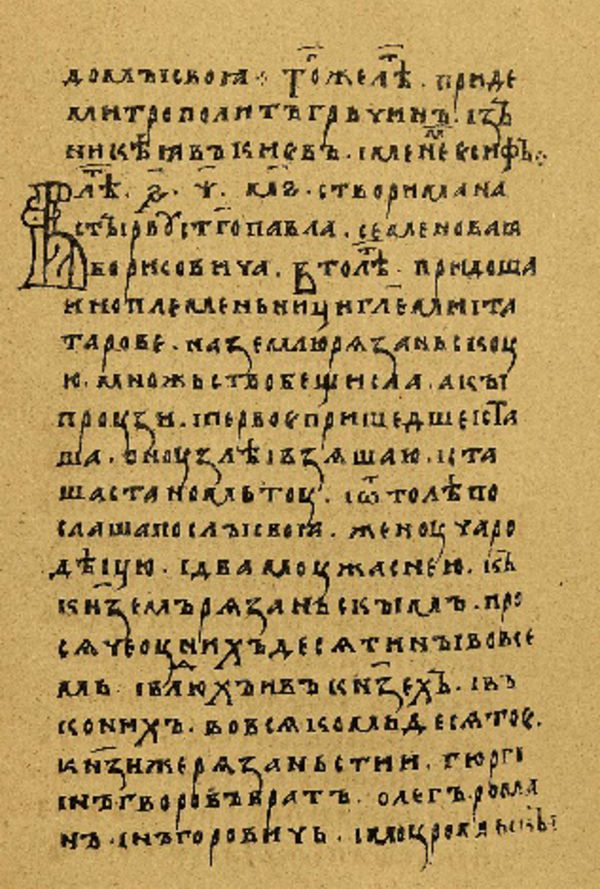 домъ свои · Того же лѣт · приде
митрополитъ гръчинъ · из
никѣи въ киевъ · именемь есифъ ·
в лѣт · ҂ѕ · ѱ · мѕ · створи мана
стырь у ст҃го павла · семеновая
борисовича · в то лѣт · придоша
иноплеменьници гл҃емии та
тарове · на землю рязаньскоу
ю · множьство бещисла · акы
проузи · и первое пришедше ста
ша · о ноузлѣ и взяша ю · и ста
ша станомь тоу · и ѿтолѣ по
слаша послы своя · женоу чаро
дѣицю · и два моужа с нею · къ
кн҃земъ рязаньскымъ · про
сяче оу нихъ десятины во все
мь · и в людехъ и въ кн҃зехъ · и въ
конихъ · во всякомь десятое ·
кн҃зи же рязаньстии · гюрги
инъгворовъ братъ · олегъ рома
нъ · инъгоровичь · и моуромьскы